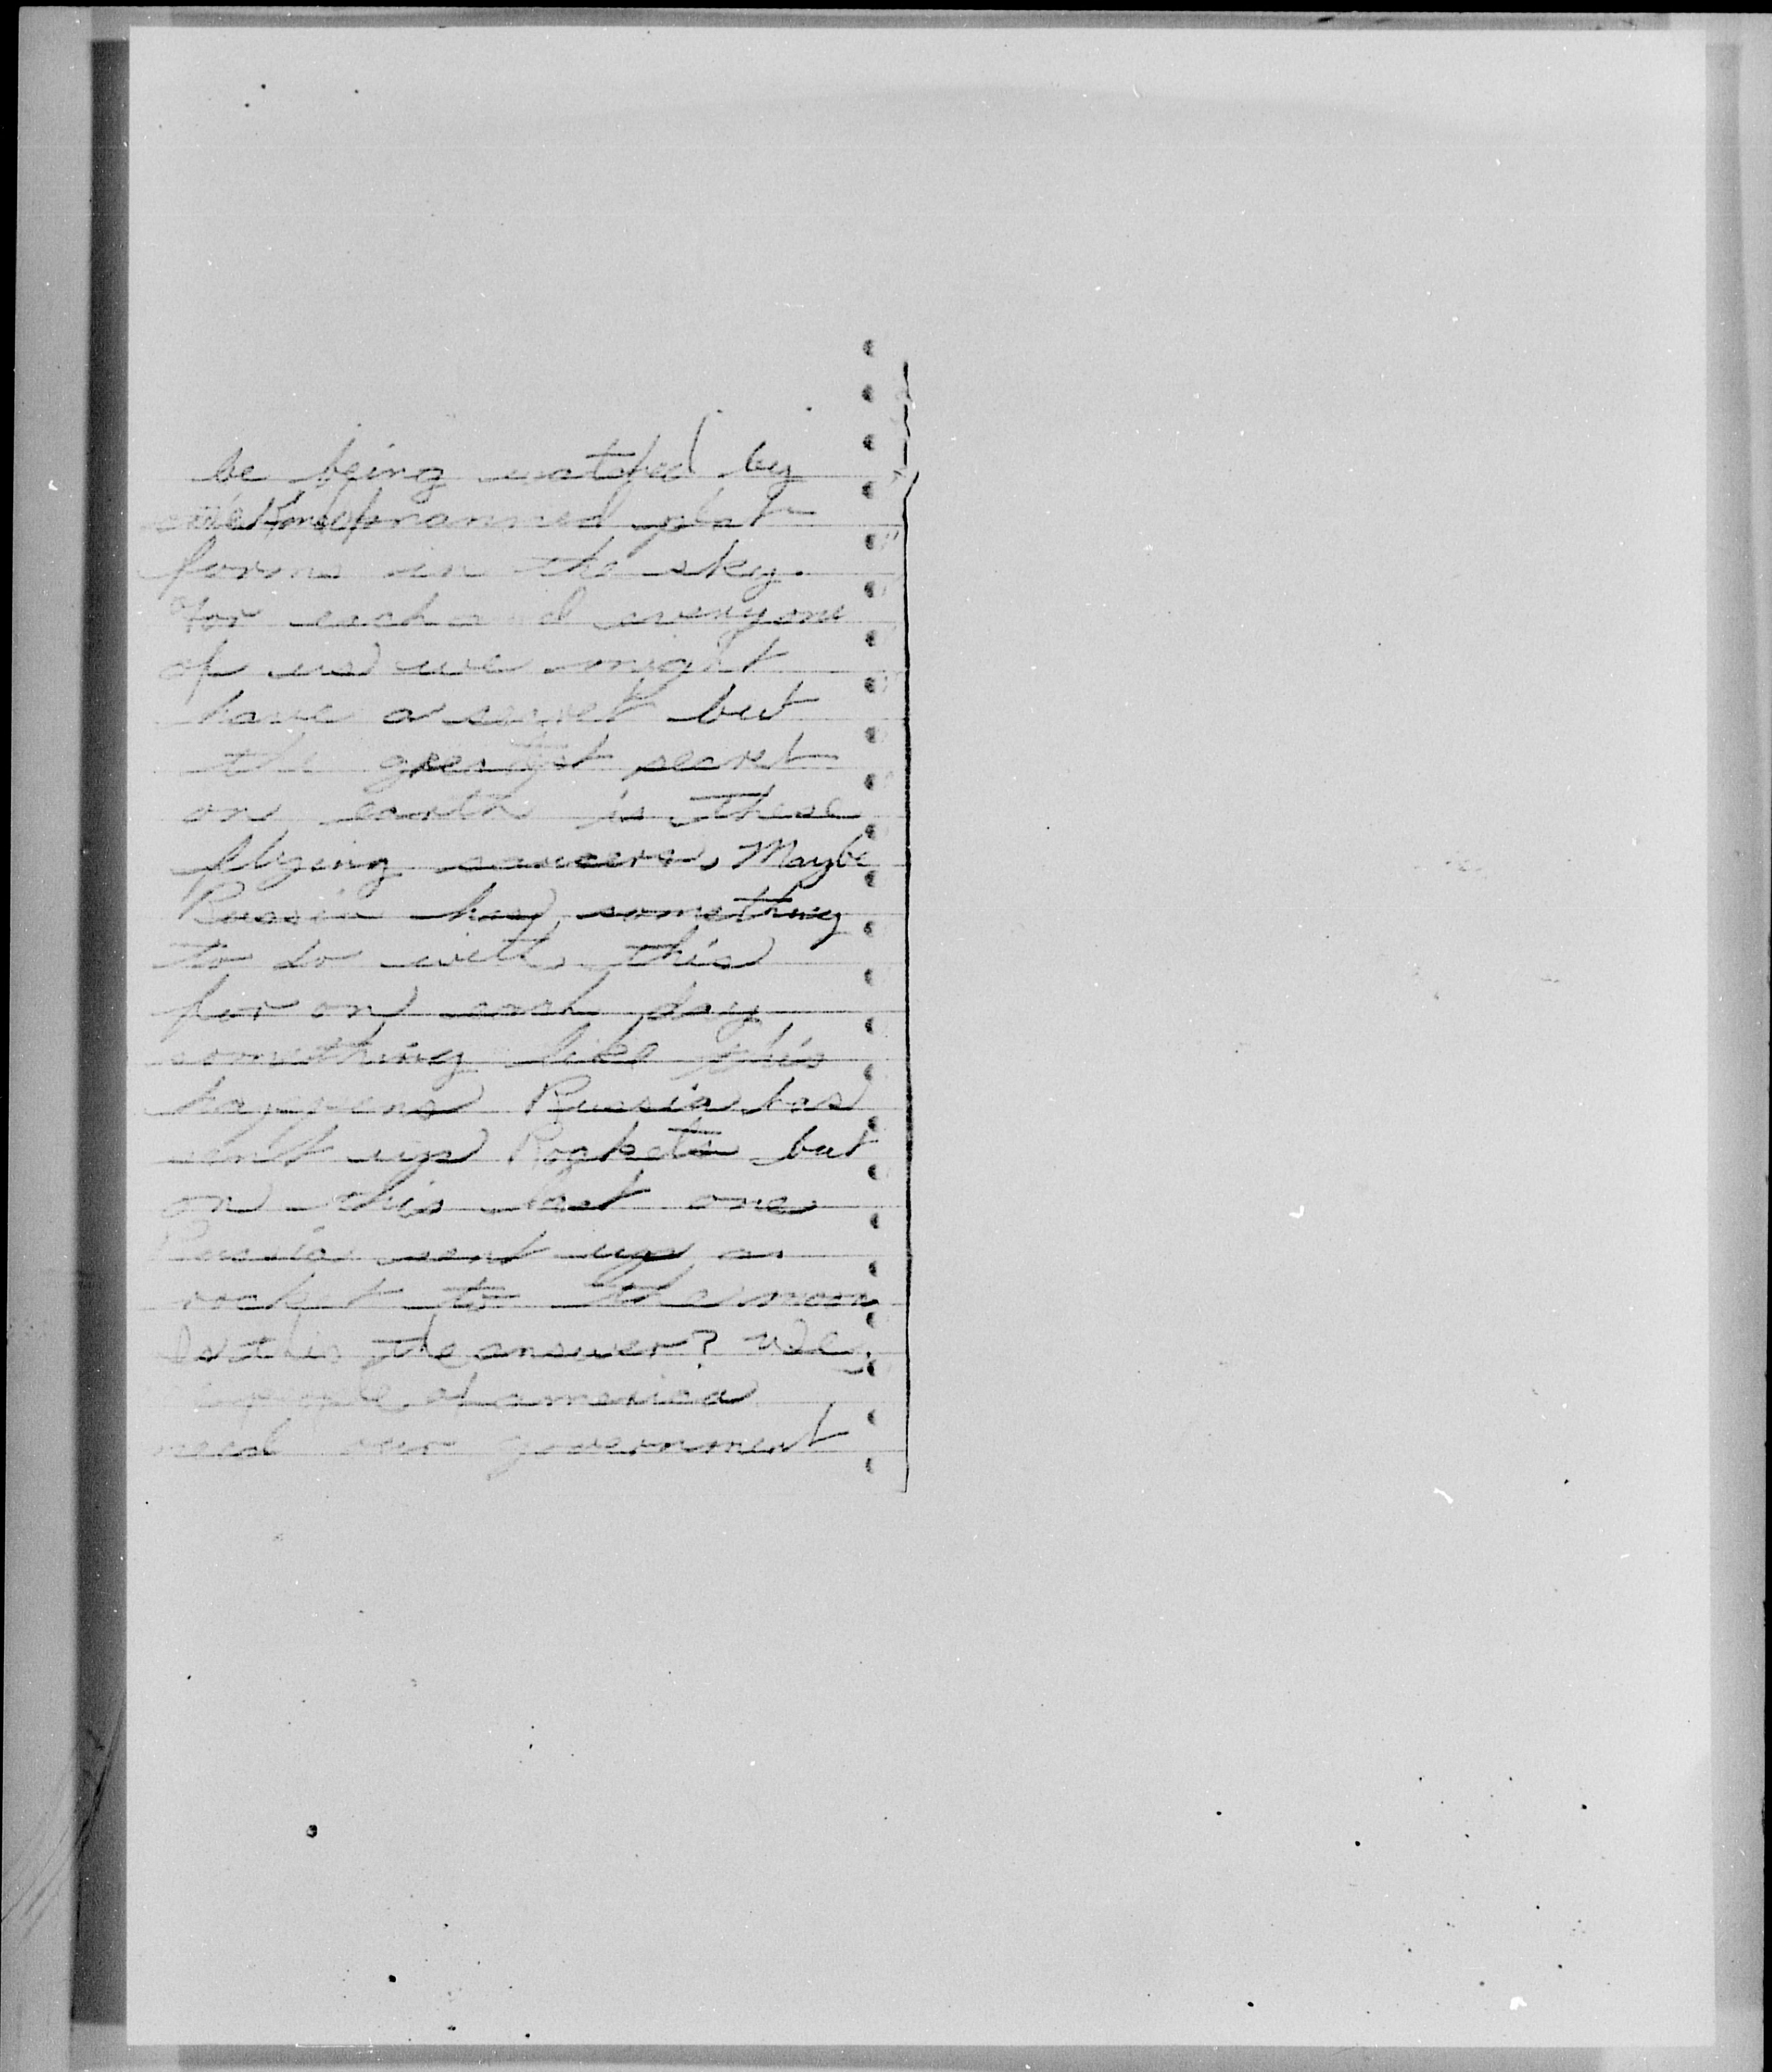 be being watched by
manned plat
forms in the sky.
For each and everyone
of us we might
have a secret but
the greatest secret
on earth is these
flying saucers, Maybe
Russia has something
to do with this
for on each day
something like this
happens Russia has
sent up Rockets but
on this last one
Russia sent up a
rocket to the moon
Is this the answer? We
people of america
need our government